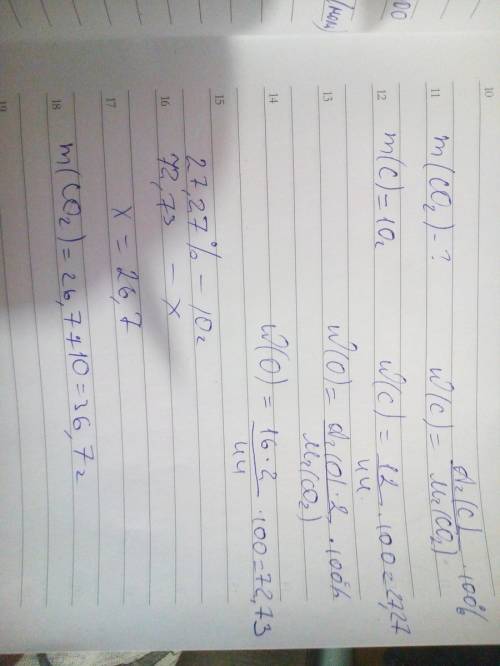 10
11 m(CO₂) - ? W(C) = Ar(C) / Mr(CO₂) · 100%
12 m(C) = 10г W(C) = 12 / 44 · 100 = 27,27
13 W(O) = Ar(O) · 2 / Mr(CO₂) · 100%
14 W(O) = 16 · 2 / 44 · 100 = 72,73
15 27,27% – 10г
16 72,73 – x
17 x = 26,7
18 m(CO₂) = 26,7 + 10 = 36,7г
19